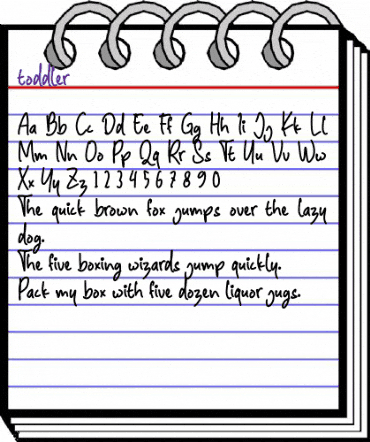 toddler
Aa Bb Cc Dd Ee Ff Gg Hh Ii Jj Kk Ll
Mm Nn Oo Pp Qq Rr Ss Tt Uu Vv Ww
Xx Yy Zz 1 2 3 4 5 6 7 8 9 0
The quick brown fox jumps over the lazy
dog.
The five boxing wizards jump quickly.
Pack my box with five dozen liquor jugs.